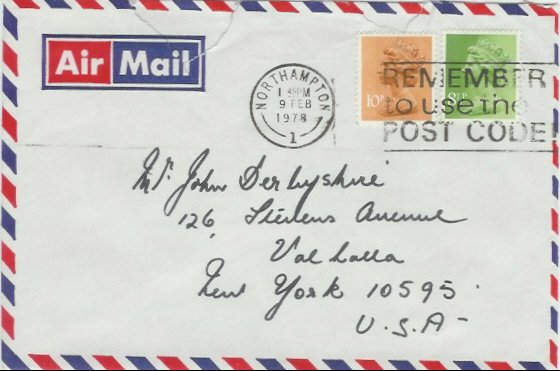 Air Mail
NORTHAMPTON
1 45PM
9 FEB
1978
1
10P
8½P
REMEMBER
to use the
POST CODE
Mr. John Derbyshire
126 Stevens Avenue
Valhalla
New York 10595.
U.S.A